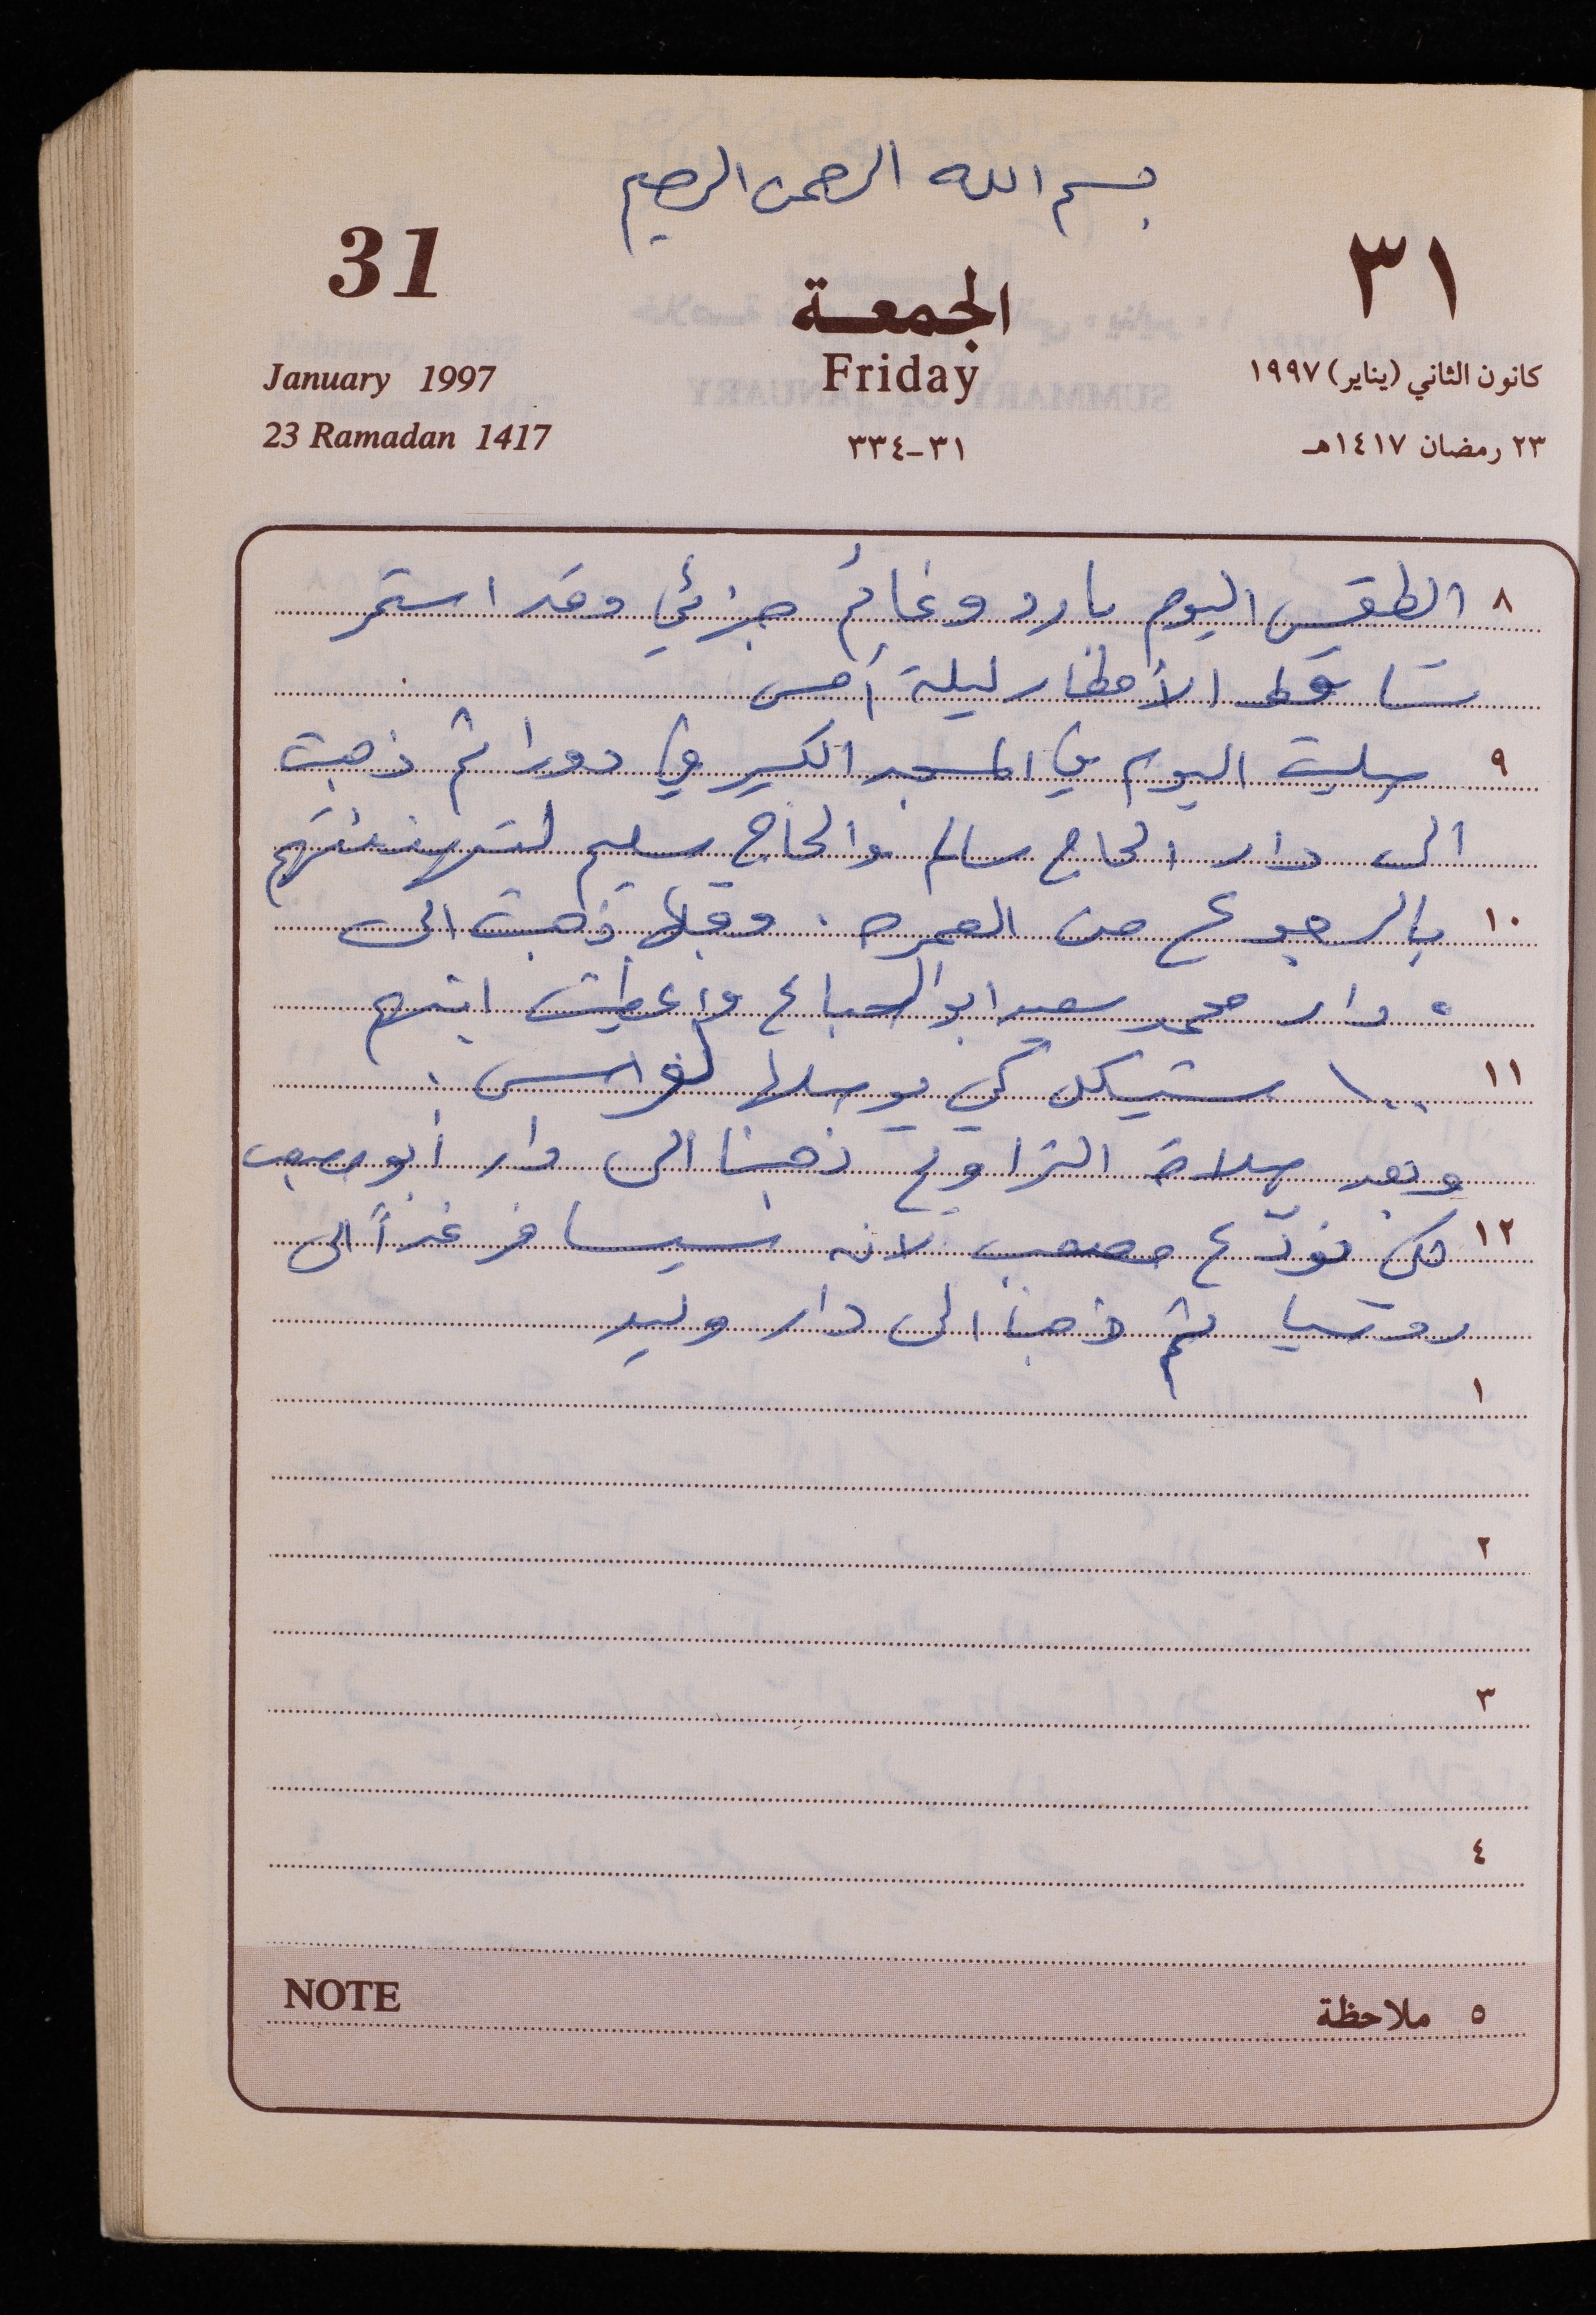 بسم الله الرحمن الرحيم
31
الجمعة
٣١
January 1997
Friday
كانون الثاني (يناير) ١٩٩٧
23 Ramadan 1417
٣١-٣٣٤
٢٣ رمضان ١٤١٧هـ
٨ الطقس اليوم بارد وغائم جزئي وقد استمر
تساقط الأمطار ليلة أمس
٩ صليت اليوم في المسجد الكبير في دورا ثم ذهبت
الى دار الحاج سالم والحاج سليم لتهنئتهم
١٠ بالرجوع من العمره . وقبلها ذهبت الى
دار محمد سعيد ابو السباع وأعطيت ابنهم
١١ ١٠٠ شيكل كي يوصلها لفراس .
وبعد صلاة التراويح ذهبنا الى دار أبو
١٢ لكي نودّع مصعب لانه سيسافر غداً الى
روسيا ثم ذهبنا الى دار وليد
١
٢
٣
٤
NOTE
٥ ملاحظة